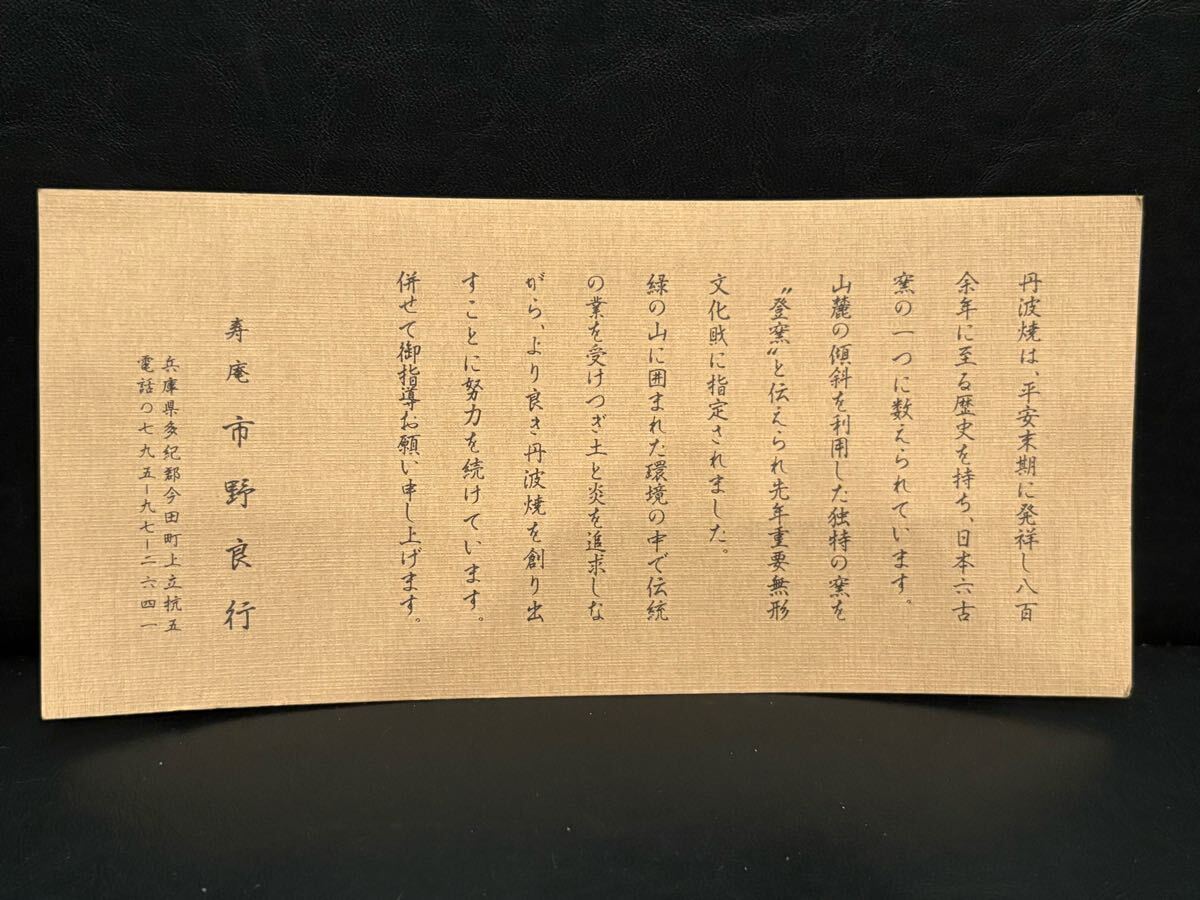 丹波焼は、平安末期に発祥し八百
余年に至る歴史を持ち、日本六古
窯の一つに数えられています。
山麓の傾斜を利用した独特の窯を
〝登窯〟と伝えられ先年重要無形
文化財に指定されました。
緑の山に囲まれた環境の中で伝統
の業を受けつぎ土と炎を追求しな
がら、より良き丹波焼を創り出
すことに努力を続けています。
併せて御指導お願い申し上げます。
寿庵 市野良行
兵庫県多紀郡今田町上立杭五
電話〇七九五―九七―二六四一